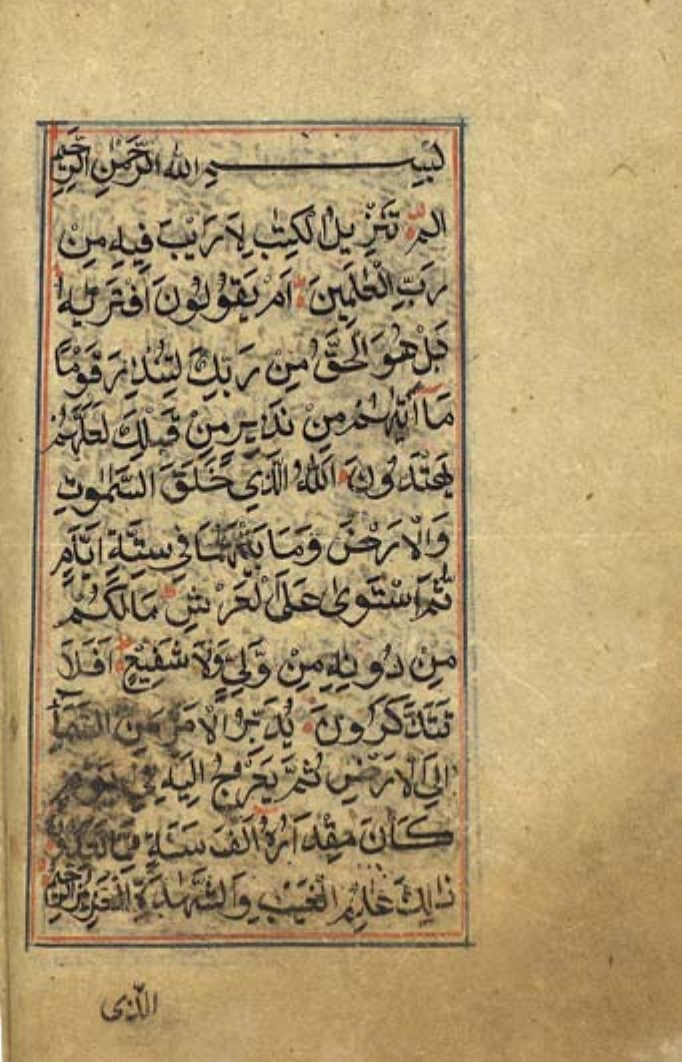 بِسْمِ اللهِ الرَّحْمٰنِ الرَّحِيْمِ
الم تَنْزِيلُ الْكِتٰبِ لَا رَيْبَ فِيْهِ مِنْ
رَبِّ الْعٰلَمِينَ اَمْ يَقُولُونَ افْتَرٰيهُ
بَلْ هُوَ الْحَقُّ مِنْ رَبِّكَ لِتُنْذِرَ قَوْمًا
مَا اَتٰيهُمْ مِنْ نَذِيرٍ مِنْ قَبْلِكَ لَعَلَّهُمْ
يَهْتَدُونَ اَللهُ الَّذِي خَلَقَ السَّمٰوٰتِ
وَالْاَرْضَ وَمَا بَيْنَهُمَا فِي سِتَّةِ اَيَّامٍ
ثُمَّ اسْتَوٰى عَلَى الْعَرْشِ مَا لَكُمْ
مِنْ دُونِهٖ مِنْ وَّلِيٍّ وَلَا شَفِيعٍ اَفَلَا
تَتَذَكَّرُونَ يُدَبِّرُ الْاَمْرَ مِنَ السَّمَآءِ
اِلَى الْاَرْضِ ثُمَّ يَعْرُجُ اِلَيْهِ فِي يَوْمٍ
كَانَ مِقْدَارُهٗ اَلْفَ سَنَةٍ مِمَّا تَعُدُّونَ
ذٰلِكَ عٰلِمُ الْغَيْبِ وَالشَّهَادَةِ الْعَزِيزُ الرَّحِيمُ
الَّذى